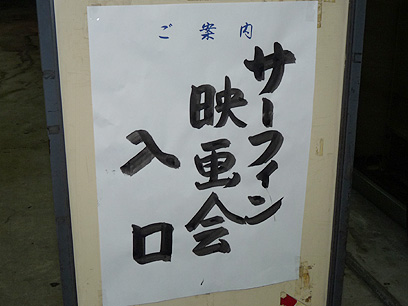 ご案内
サーフィン
映画会
入口